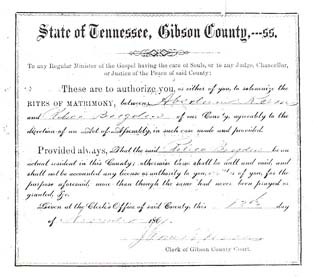 State of Tennessee, Gibson County,---ss.
To any Regular Minister of the Gospel having the care of Souls, or to any Judge, Chancellor,
or Justice of the Peace of said County:
These are to authorize you, or either of you, to solemnize the
RITES OF MATRIMONY, between
and of our County, agreeably to the
direction of an Act of Assembly, in such case made and provided.
Provided always, That the said being an
actual resident in this County; otherwise these shall be null and void, and
shall not be accounted any license or authority to you, or of you, for the
purpose aforesaid, more than though the same had never been prayed or
granted, &c.
Given at the Clerk's Office of said County, this day
of 186
Clerk of Gibson County Court.